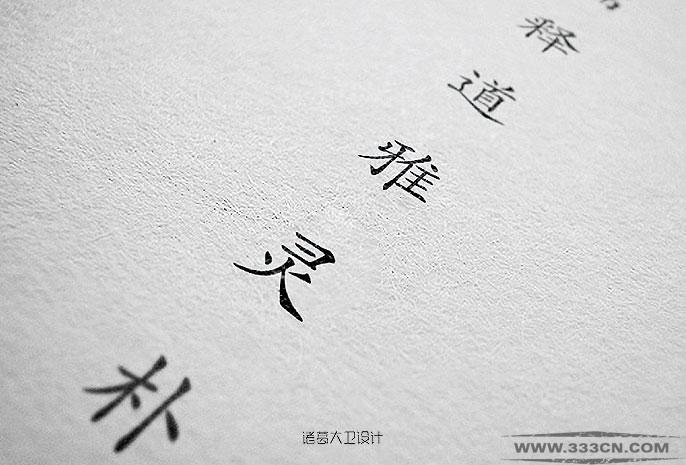 释
道
雅
灵
朴
诸葛大卫设计
WWW.333CN.COM